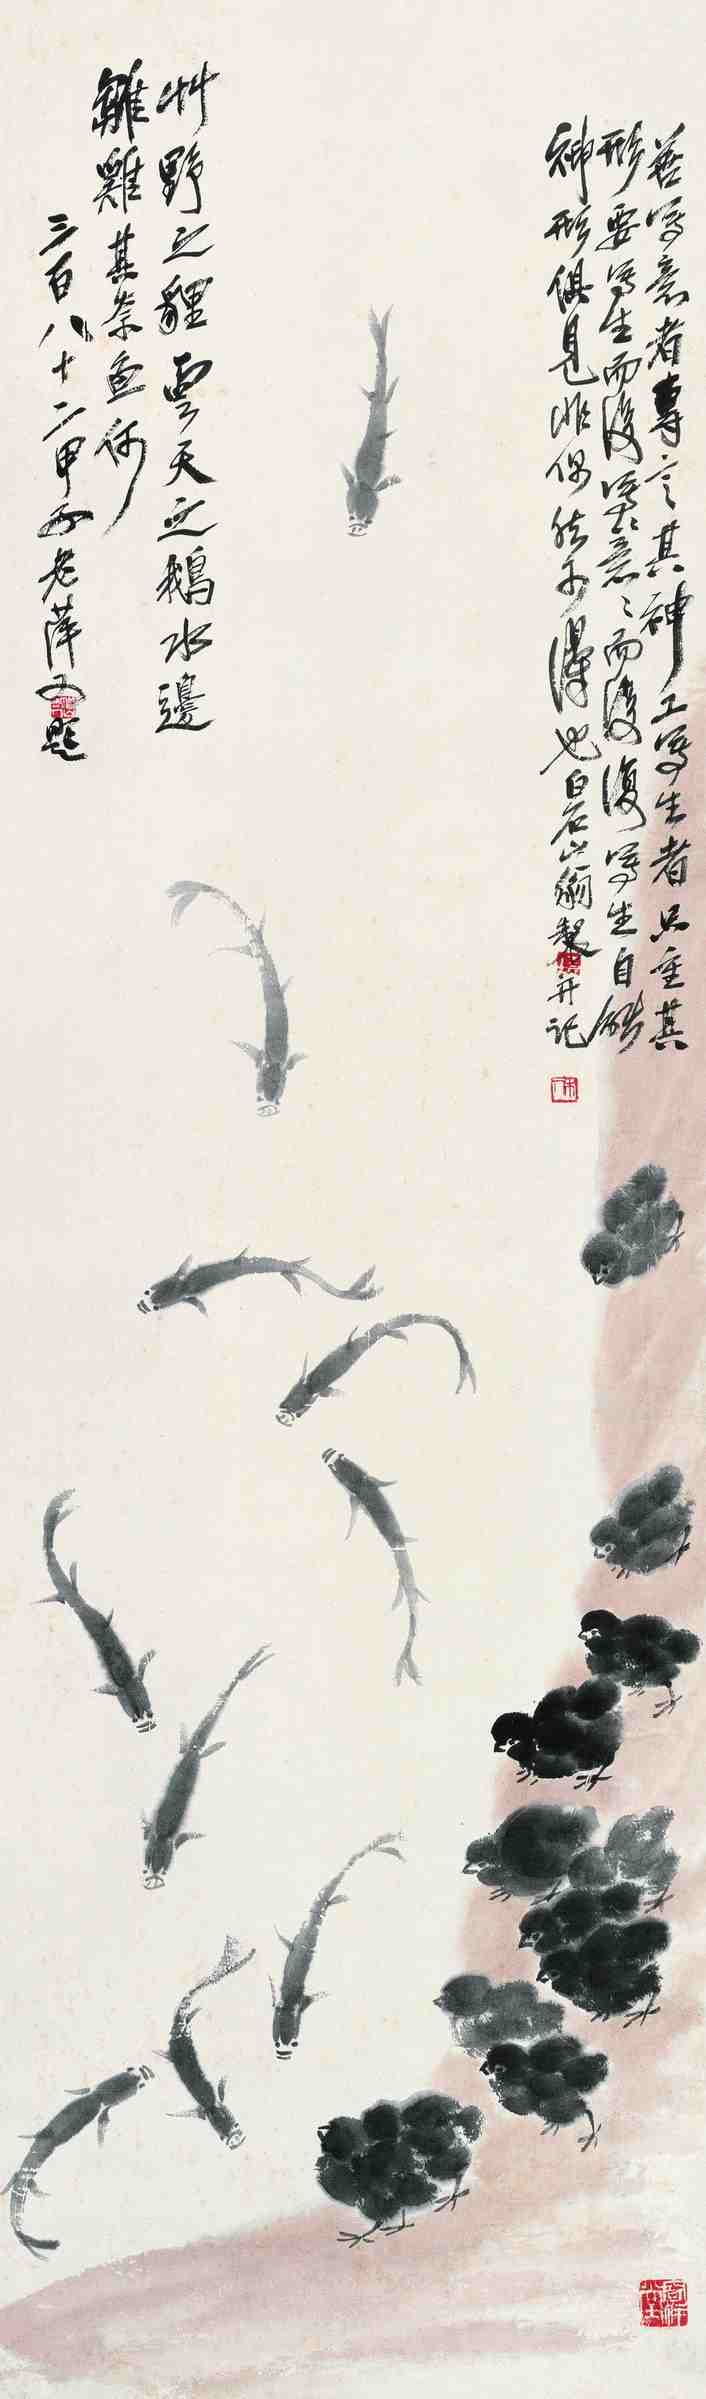 善寫意者專言其神工寫生者只重其
形要寫生而後寫意寫意而後復寫生自能
神形俱見非偶然可得也白石山翁製并記
艸野之貍雲天之鵝水邊
雛雞其奈魚何
三百八十二甲子老萍又題